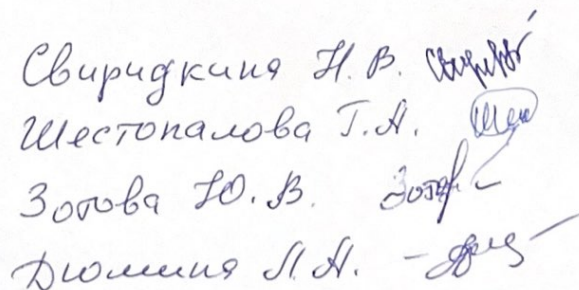 Свиридкина Н. В.
Шестопалова Т. А.
Зотова Ю. В. Зотов
Дюмина Л. А.